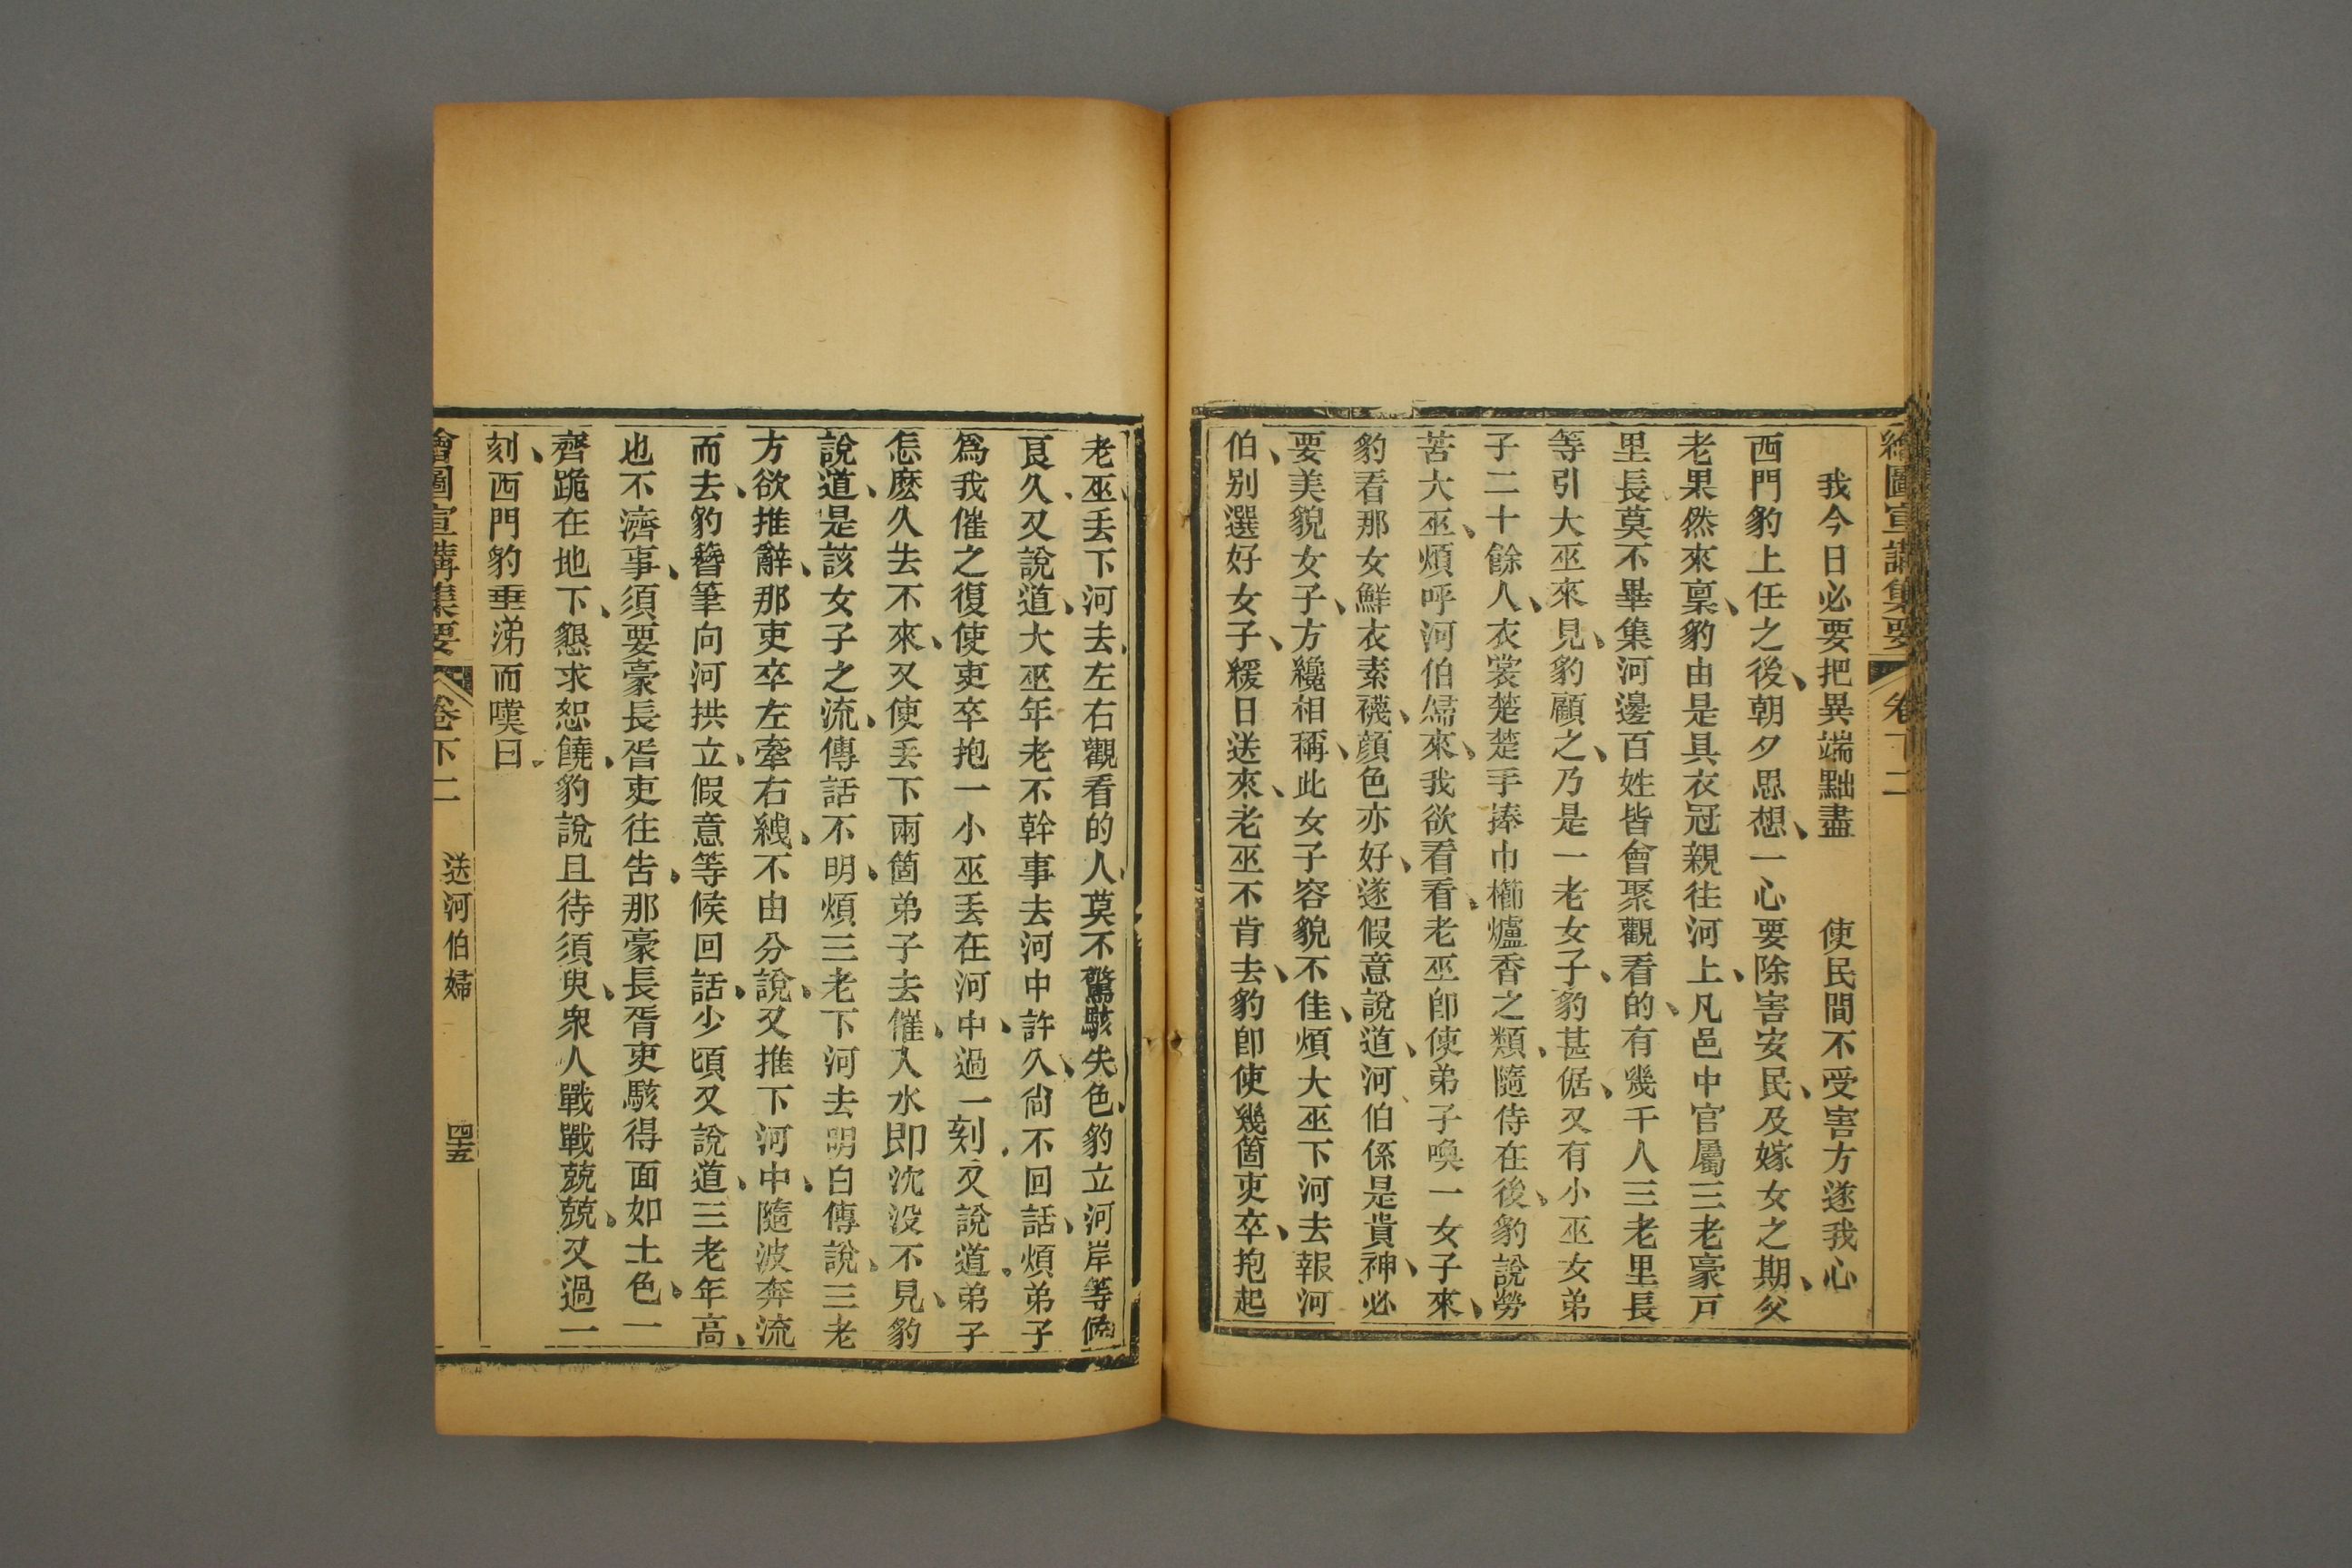 繪圖宣講集要 卷下二
我今日必要把異端黜盡 使民間不受害方遂我心
西門豹上任之後、朝夕思想、一心要除害安民、及嫁女之期、父
老果然來稟、豹由是具衣冠親往河上、凡邑中官屬三老豪戸
里長莫不畢集河邊百姓皆會聚觀看的、有幾千人三老里長
等引大巫來見、豹顧之、乃是一老女子、豹甚倨、又有小巫女弟
子二十餘人、衣裳楚楚手捧巾櫛爐香之類、隨侍在後、豹說勞
苦大巫、煩呼河伯婦來、我欲看看、老巫卽使弟子喚一女子來、
豹看那女鮮衣素襪、顔色亦好、遂假意說道、河伯係是貴神、必
要美貌女子、方纔相稱、此女子容貌不佳、煩大巫下河去報河
伯、别選好女子、緩日送來、老巫不肯去、豹卽使幾箇吏卒、抱起
老巫、丢下河去、左右觀看的人、莫不驚駭失色、豹立河岸等候
良久、又說道、大巫年老不幹事去河中許久、尙不回話、煩弟子
爲我催之復使吏卒抱一小巫丢在河中、過一刻、又說道、弟子
怎麽久去不來、又使丢下兩箇弟子去催、入水即沈没不見、豹
說道、是該女子之流、傳話不明、煩三老下河去明白傳說、三老
方欲推辭、那吏卒左牽右綫、不由分說、又推下河中、隨波奔流
而去、豹簪筆向河拱立、假意等候回話、少頃又說道、三老年高、
也不濟事、須要豪長胥吏往吿、那豪長胥吏駭得面如土色、一
齊跪在地下、懇求恕饒、豹說且待須臾、衆人戰戰兢兢、又過一
刻、西門豹垂涕而嘆曰。
繪圖宣講集要 卷下二 送河伯婦 四十五